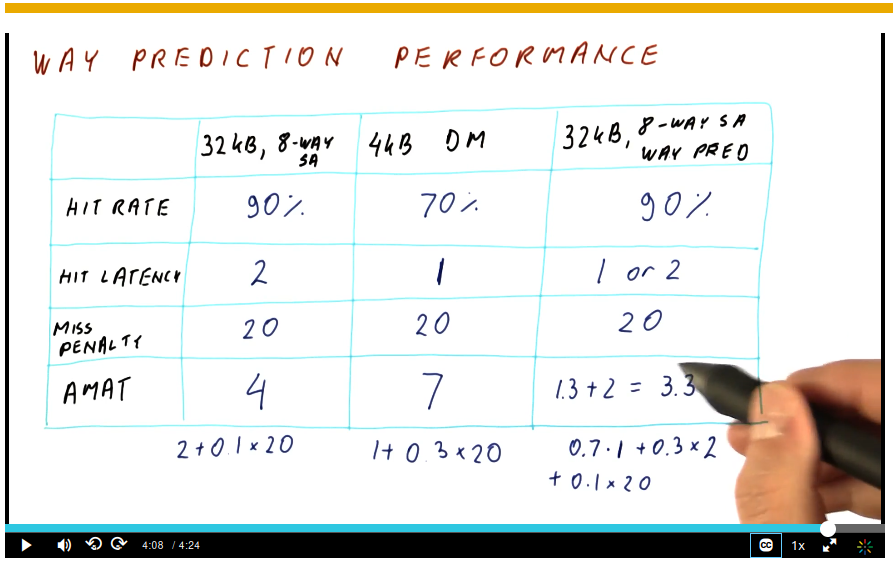 WAY PREDICTION PERFORMANCE
32kB, 8-WAY SA
4kB DM
32kB, 8-WAY SA WAY PRED
HIT RATE 90% 70% 90%
HIT LATENCY 2 1 1 or 2
MISS PENALTY 20 20 20
AMAT 4 7 1.3 + 2 = 3.3
2 + 0.1 × 20 1 + 0.3 × 20 0.7 · 1 + 0.3 × 2
+ 0.1 × 20
4:08 / 4:24 CC 1x